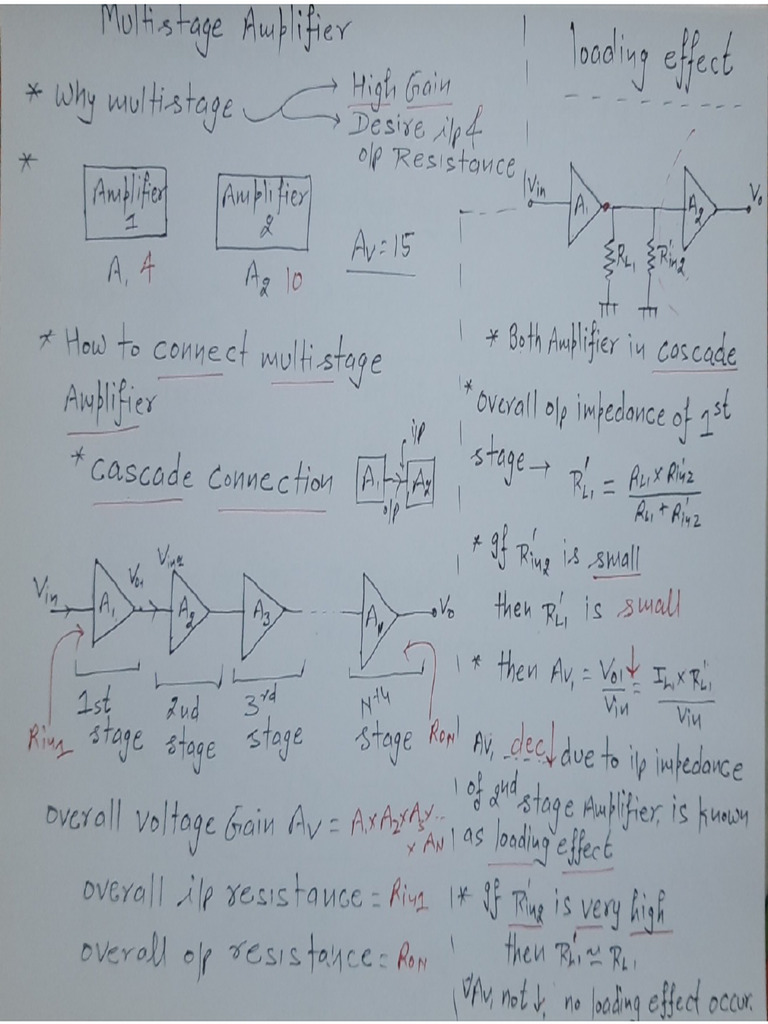 Multistage Amplifier
* Why multistage
High Gain
Desire i/p &
o/p Resistance
*
Amplifier
1
Amplifier
2
A1 4
A2 10
Av = 15
* How to connect multistage
Amplifier
* Cascade Connection
A1
A2
i/p
o/p
Vin
A1
Vo1
Vin2
A2
A3
AN
Vo
1st
stage
2nd
stage
3rd
stage
Nth
stage
Rin1
RoN
overall voltage Gain Av = A1 x A2 x A3 x..
x AN
overall i/p resistance = Rin1
overall o/p resistance = RoN
loading effect
Vin
A1
A2
Vo
RL1
R'in2
* Both Amplifier in cascade
* overall o/p impedance of 1st
stage → R'L1 = RL1 x R'in2 / RL1 + R'in2
* If R'in2 is small
then R'L1 is small
* then Av1 = Vo1↓ / Vin = IL1 x R'L1 / Vin
Av1 dec↓ due to i/p impedance
of 2nd stage Amplifier, is known
as loading effect
* If R'in2 is very high
then R'L1 ≃ RL1
Av1 not ↓, no loading effect occur.